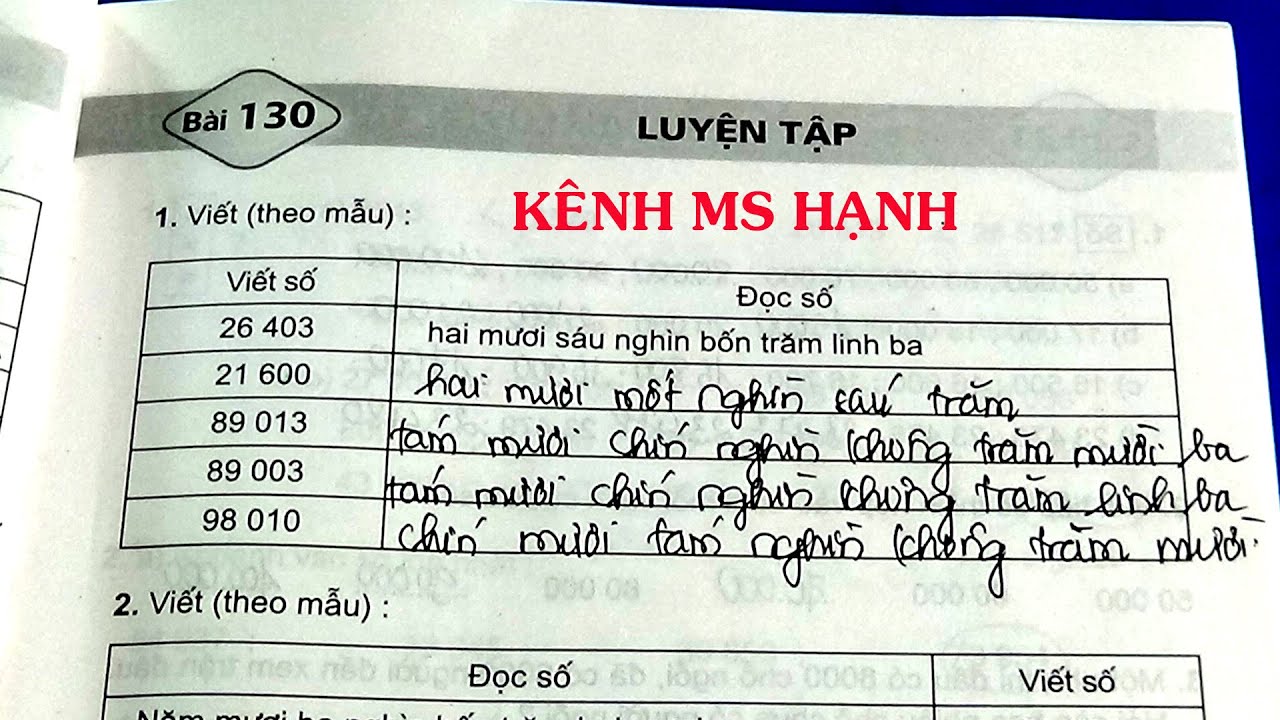 Bài 130
LUYỆN TẬP
KÊNH MS HẠNH
1. Viết (theo mẫu) :
Viết số Đọc số
26 403 hai mươi sáu nghìn bốn trăm linh ba
21 600 hai mươi mốt nghìn sáu trăm
89 013 tám mươi chín nghìn không trăm mười ba
89 003 tám mươi chín nghìn không trăm linh ba
98 010 chín mươi tám nghìn không trăm mười
2. Viết (theo mẫu) :
Đọc số Viết số